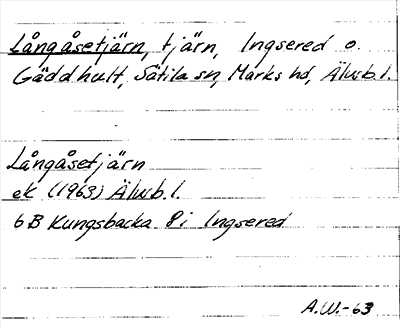 Långåsetjärn, tjärn, Ingsered o.
Gäddhult, Sätila sn, Marks hd, Älvsb. l.
Långåsetjärn
ek (1963) Älvsb. l.
6B Kungsbacka 8i Ingsered
A.W.-63